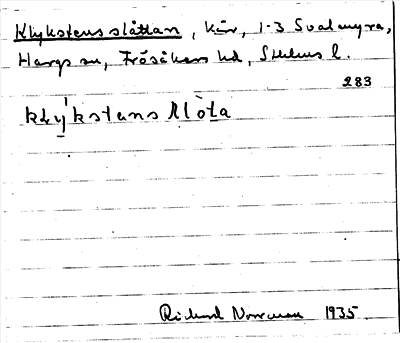 Klykstensslåttan, kär, 1-3 Svalmyra,
Hargs sn, Frösåkers hd, Sthlms l.
283
klýkstans slòta
Rickard Norrman 1935.